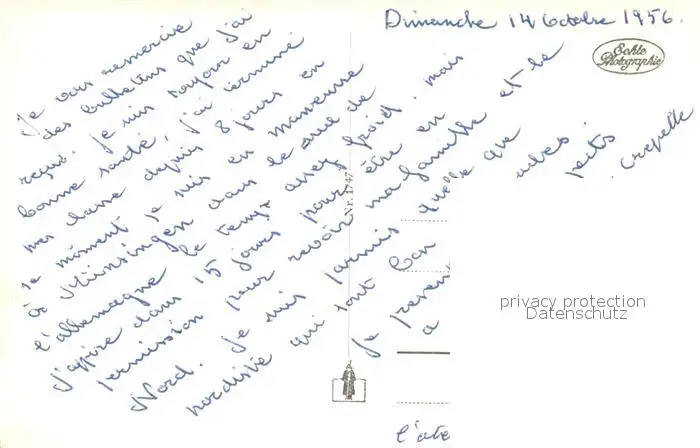 Dimanche 14 Octobre 1956.
Echte
Photographie
Je vous remercie
des bulletins que j'ai
reçus. Je suis toujour en
bonne santé, j'ai terminé
mes classe depuis 8 jours en
se moment je suis en manœuvre
à Münsingen dans le sud de
l'allemagne le temps assez froid. mais
j'espère dans 15 jours pour être en
permission pour revoir ma famille et le
Nord. Je suis parmis quelle que
nordiste qui sont bon
Je
a
Crepelle
l'ate
Nr. 1747
privacy protection
Datenschutz